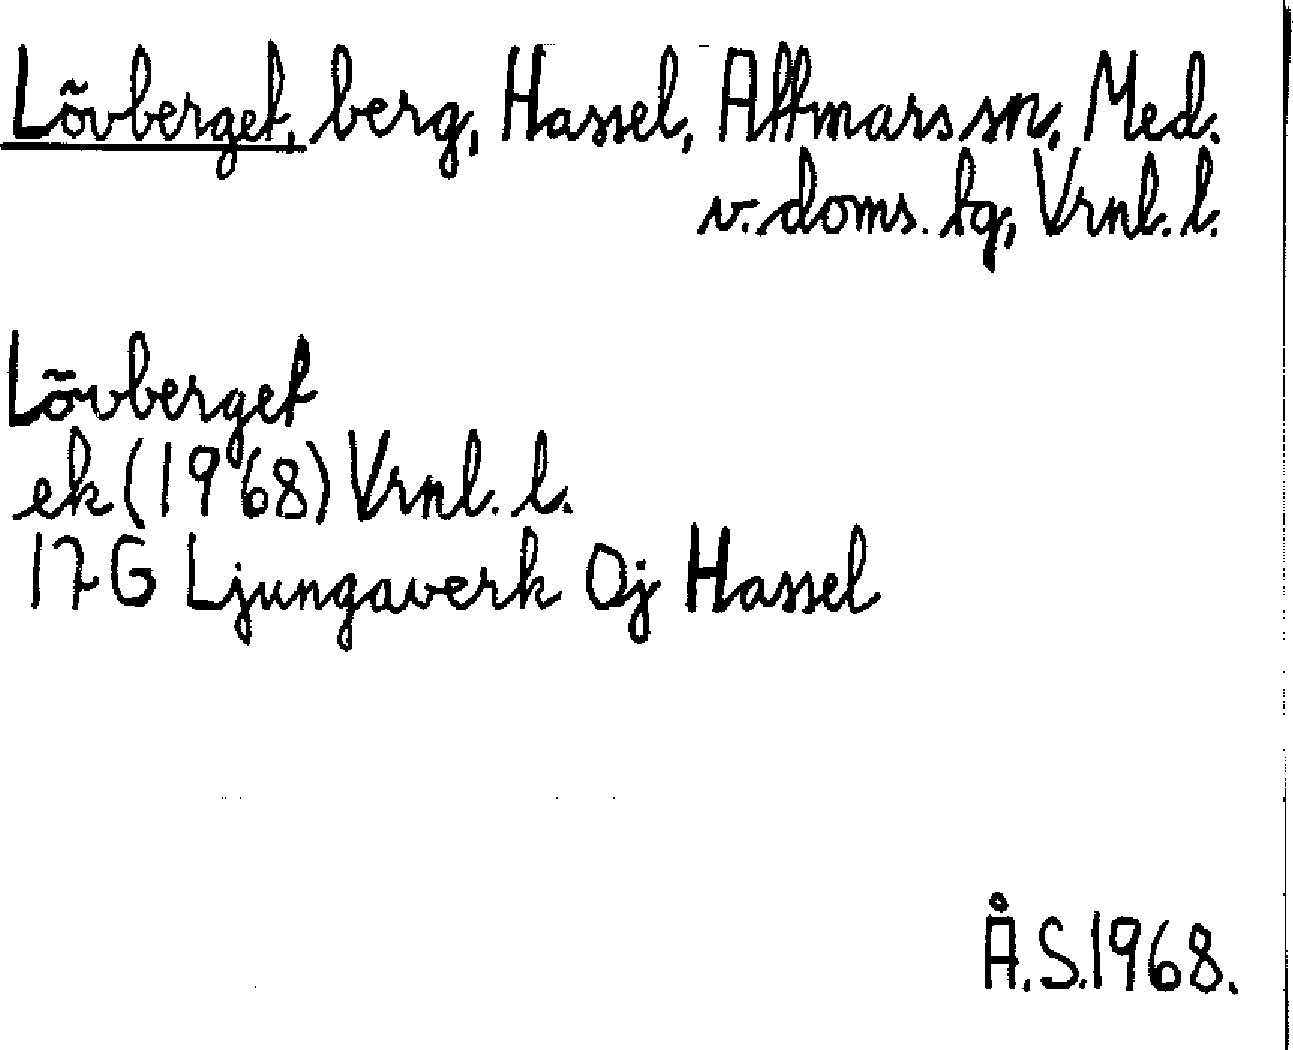 Lövberget, berg, Hassel, Attmars sn, Med.
v. doms. tg, Vrnl. l.
Lövberget
ek (1968) Vrnl. l.
17 G Ljungaverk 0j Hassel
Å.S.1968.